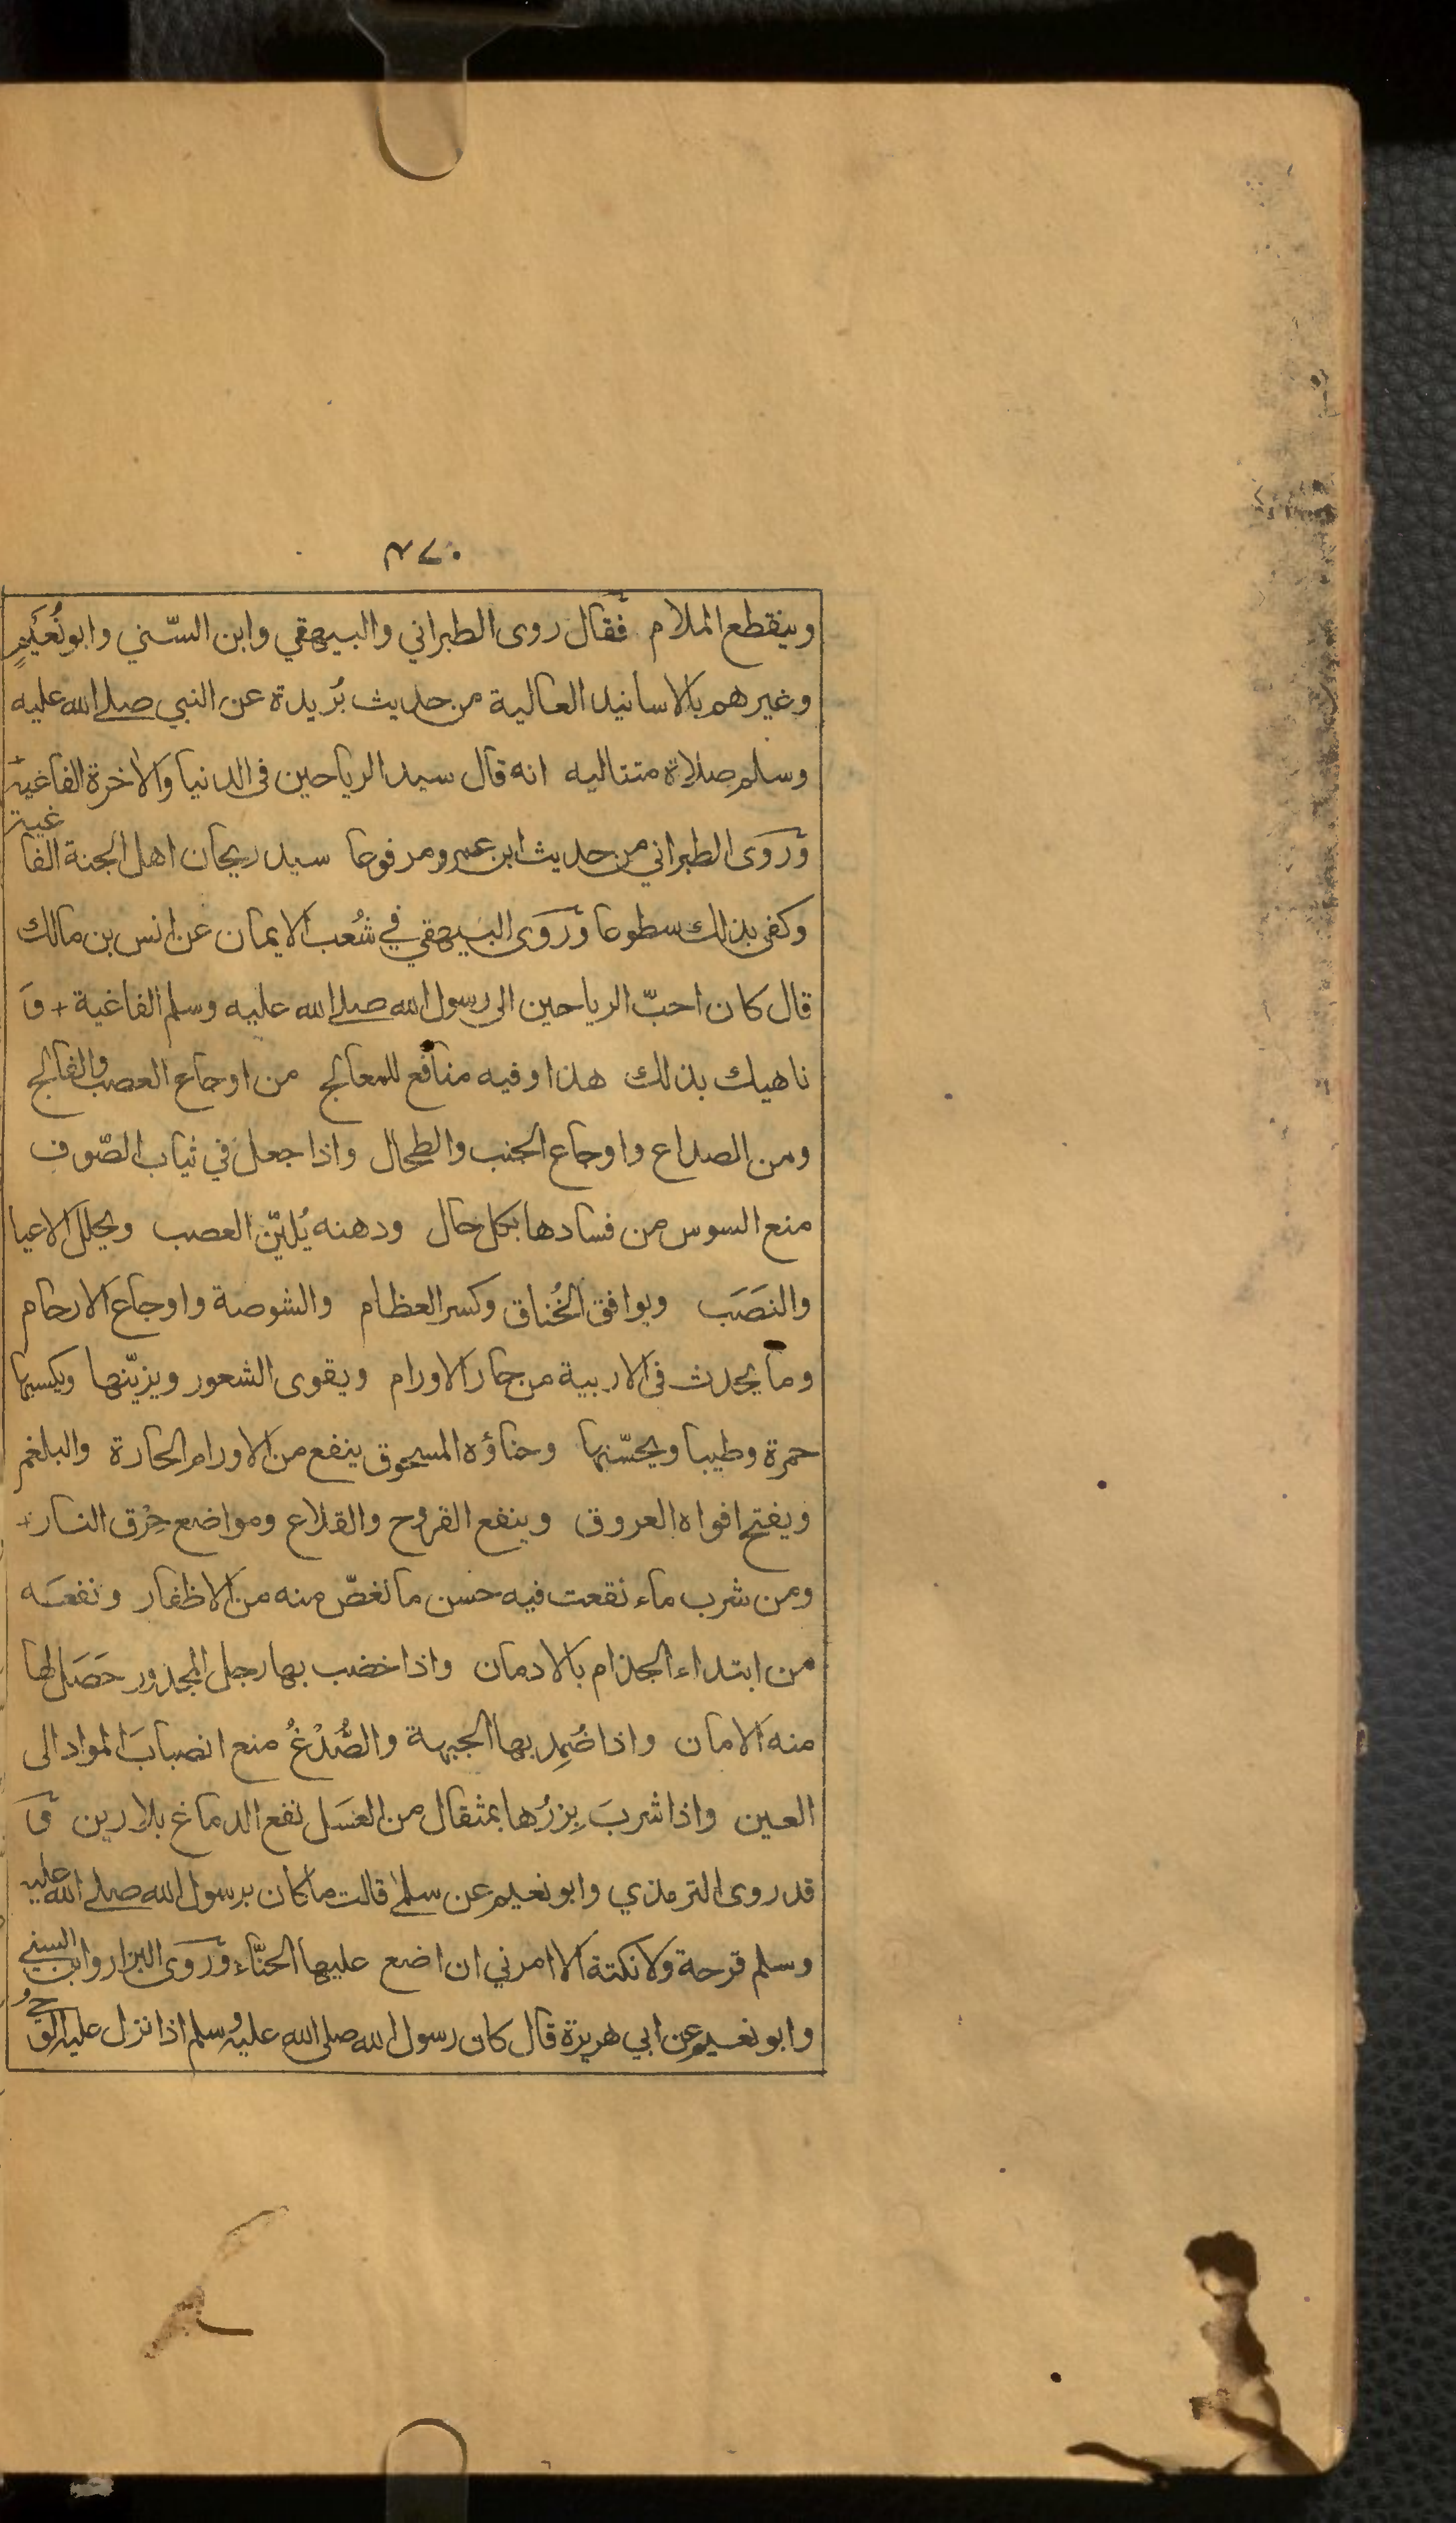 ٢٧٠
وينقطع الملام فقال روى الطبراني والبيهقي وابن السّني وابو نُعَيمٍ
وغيرهم بالاسانيد العالية من حديث بُريدة عن النبي صلى الله عليه
وسلم صلاة متتاليه انه قال سيد الرياحين فى الدنيا والاخرة الفاغية
وَرَوَى الطبراني من حديث ابن عمرو مرفوعا سيد ريحان اهل الجنة الفاغية
وكفى بذلك سطوعا وَرَوَى البيهقي في شُعب الايمان عن انس بن مالك
قال كان احبّ الرياحين الى رسول الله صلى الله عليه وسلم الفاغية + وَ
ناهيك بذلك هذا وفيه منافع للمعالج من اوجاع العصب والفالج
ومن الصداع واوجاع الجنب والطحال واذا جعل في ثياب الصّوف
منع السوس من فسادها بكل حال ودهنه يُليّن العصب ويحلل الاعيا
والنَصَب ويوافق الخُناق وكسر العظام والشوصة واوجاع الارحام
وما يحدث فى الاربية من حار الاورام ويقوى الشعور ويزيّنها ويكسبها
حمرة وطيبا ويحسّنها وحناؤه المسحوق ينفع من الاورام الحارة والبلغم
ويفتح افواه العروق وينفع القروح والقلاع ومواضع حِرْق النار +
ومن شرب ماء نقعت فيه حسن ما نغصّ منه من الاظفار ونفعَه
من ابتداء الجذام بالادمان واذا خضب بها رجل المجدور حَصَل لها
منه الامان واذا ضُمِد بها الجبهة والصُّدْغُ منع انصبابَ المواد الى
العين واذا شربَ بِزرُها بمثقال من العَسَل نفع الدماغ بلا رين وَ
قد روى الترمذي وابو نعيم عن سلمى قالت ما كان برسول الله صلى الله عليه
وسلم قرحة ولا نكتة الا امرني ان اضع عليها الحنّاء وَرَوَى البزار وابن السني
وابو نعيم عن ابي هريرة قال كان رسول الله صلى الله عليه وسلم اذا نزل عليه الوَحيُ